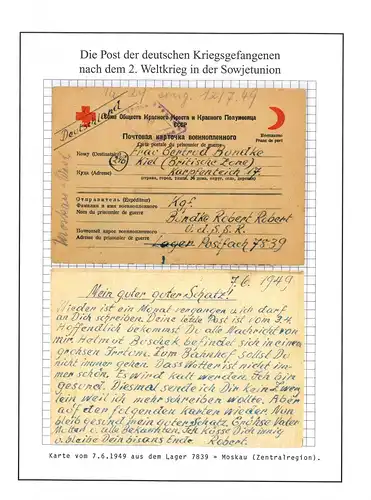 Die Post der deutschen Kriegsgefangenen
nach dem 2. Weltkrieg in der Sowjetunion
12/7.49
Deutschland
Союз Обществ Красного Креста и Красного Полумесяца
СССР
Почтовая карточка военнопленного
Carte postale du prisonnier de guerre
Бесплатно
Franc de port
Кому (Destinataire) Frau Gertrud Bündke
Kiel (Britische Zone)
Куда (Adresse) Karpfenteich 17
Moskau - Kiel
Отправитель (Expéditeur)
Фамилия и имя военнопленного Kgf.
Nom du prisonnier de guerre
Bündke Robert Robert
Почтовый адрес военнопленного U.d.S.S.R.
Adresse du prisonnier de guerre
Lager Postfach 7839
7.6. 1949
Mein guter guter Schatz!
Wieder ist ein Monat vergangen u. ich darf
an Dich schreiben. Deine letzte Post ist vom
Hoffentlich bekommst Du alle Nachricht von
mir. Helmut Buschek befindet sich in einem
grossen Irrtum. Zum Bahnhof sollst Du
nicht immer gehen. Das Wetter ist nicht im-
mer schön. Es wird kalt werden. Ich bin
gesund. Diesmal sende ich Dir kein
lein weil ich mehr schreiben wollte. Aber
auf den folgenden Karten wieder. Nun
bleib gesund mein guter Schatz. Grüsse Vater
Mutter u. alle Bekannten. Ich küsse Dich innig
u. bleibe Dein bis ans Ende Robert.
Karte vom 7.6.1949 aus dem Lager 7839 = Moskau (Zentralregion).